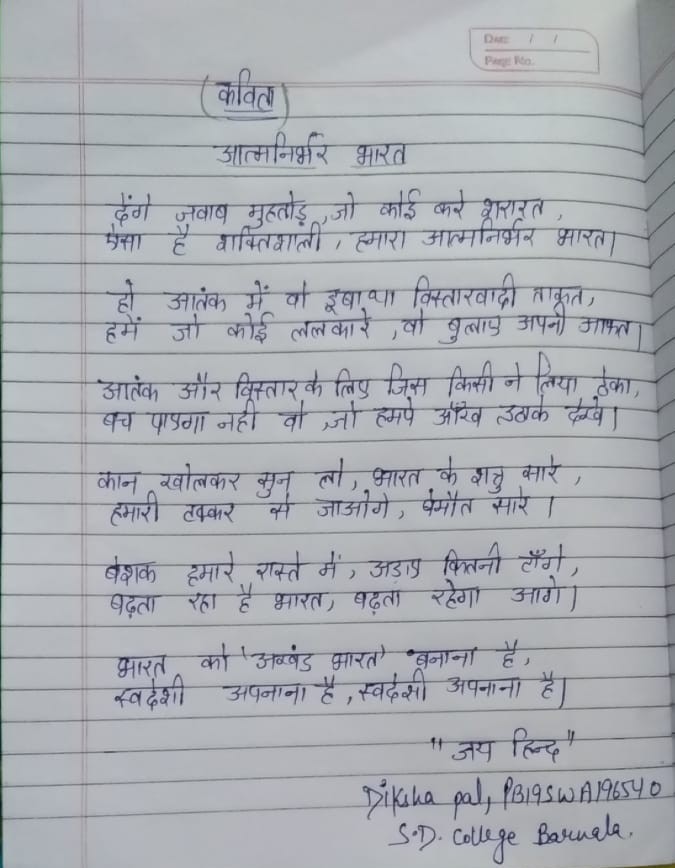 Date / /
Page No.
(कविता)
आत्मनिर्भर भारत
देंगे जवाब मुहतोड़, जो कोई करे शरारत,
ऐसा है शक्तिशाली, हमारा आत्मनिर्भर भारत।
हो आतंक में वो डूबा या विस्तारवादी ताकत,
हमें जो कोई ललकारे, वो बुलाए अपनी आफत।
आतंक और विस्तार के लिए जिस किसी ने लिया ठेका,
बच पाएगा नहीं वो, जो हमपे आँख उठाके देखे।
कान खोलकर सुन लो, भारत के शत्रु सारे,
हमारी टक्कर से जाओगे, बेमौत सारे।
बेशक हमारे रास्ते में, अड़ाए कितनी टाँगे,
बढ़ता रहा है भारत, बढ़ता रहेगा आगे।
भारत को 'अखंड भारत' बनाना है,
स्वदेशी अपनाना है, स्वदेशी अपनाना है।
"जय हिन्द"
Diksha pal, PB19SWA196540
S.D. College Barnala.